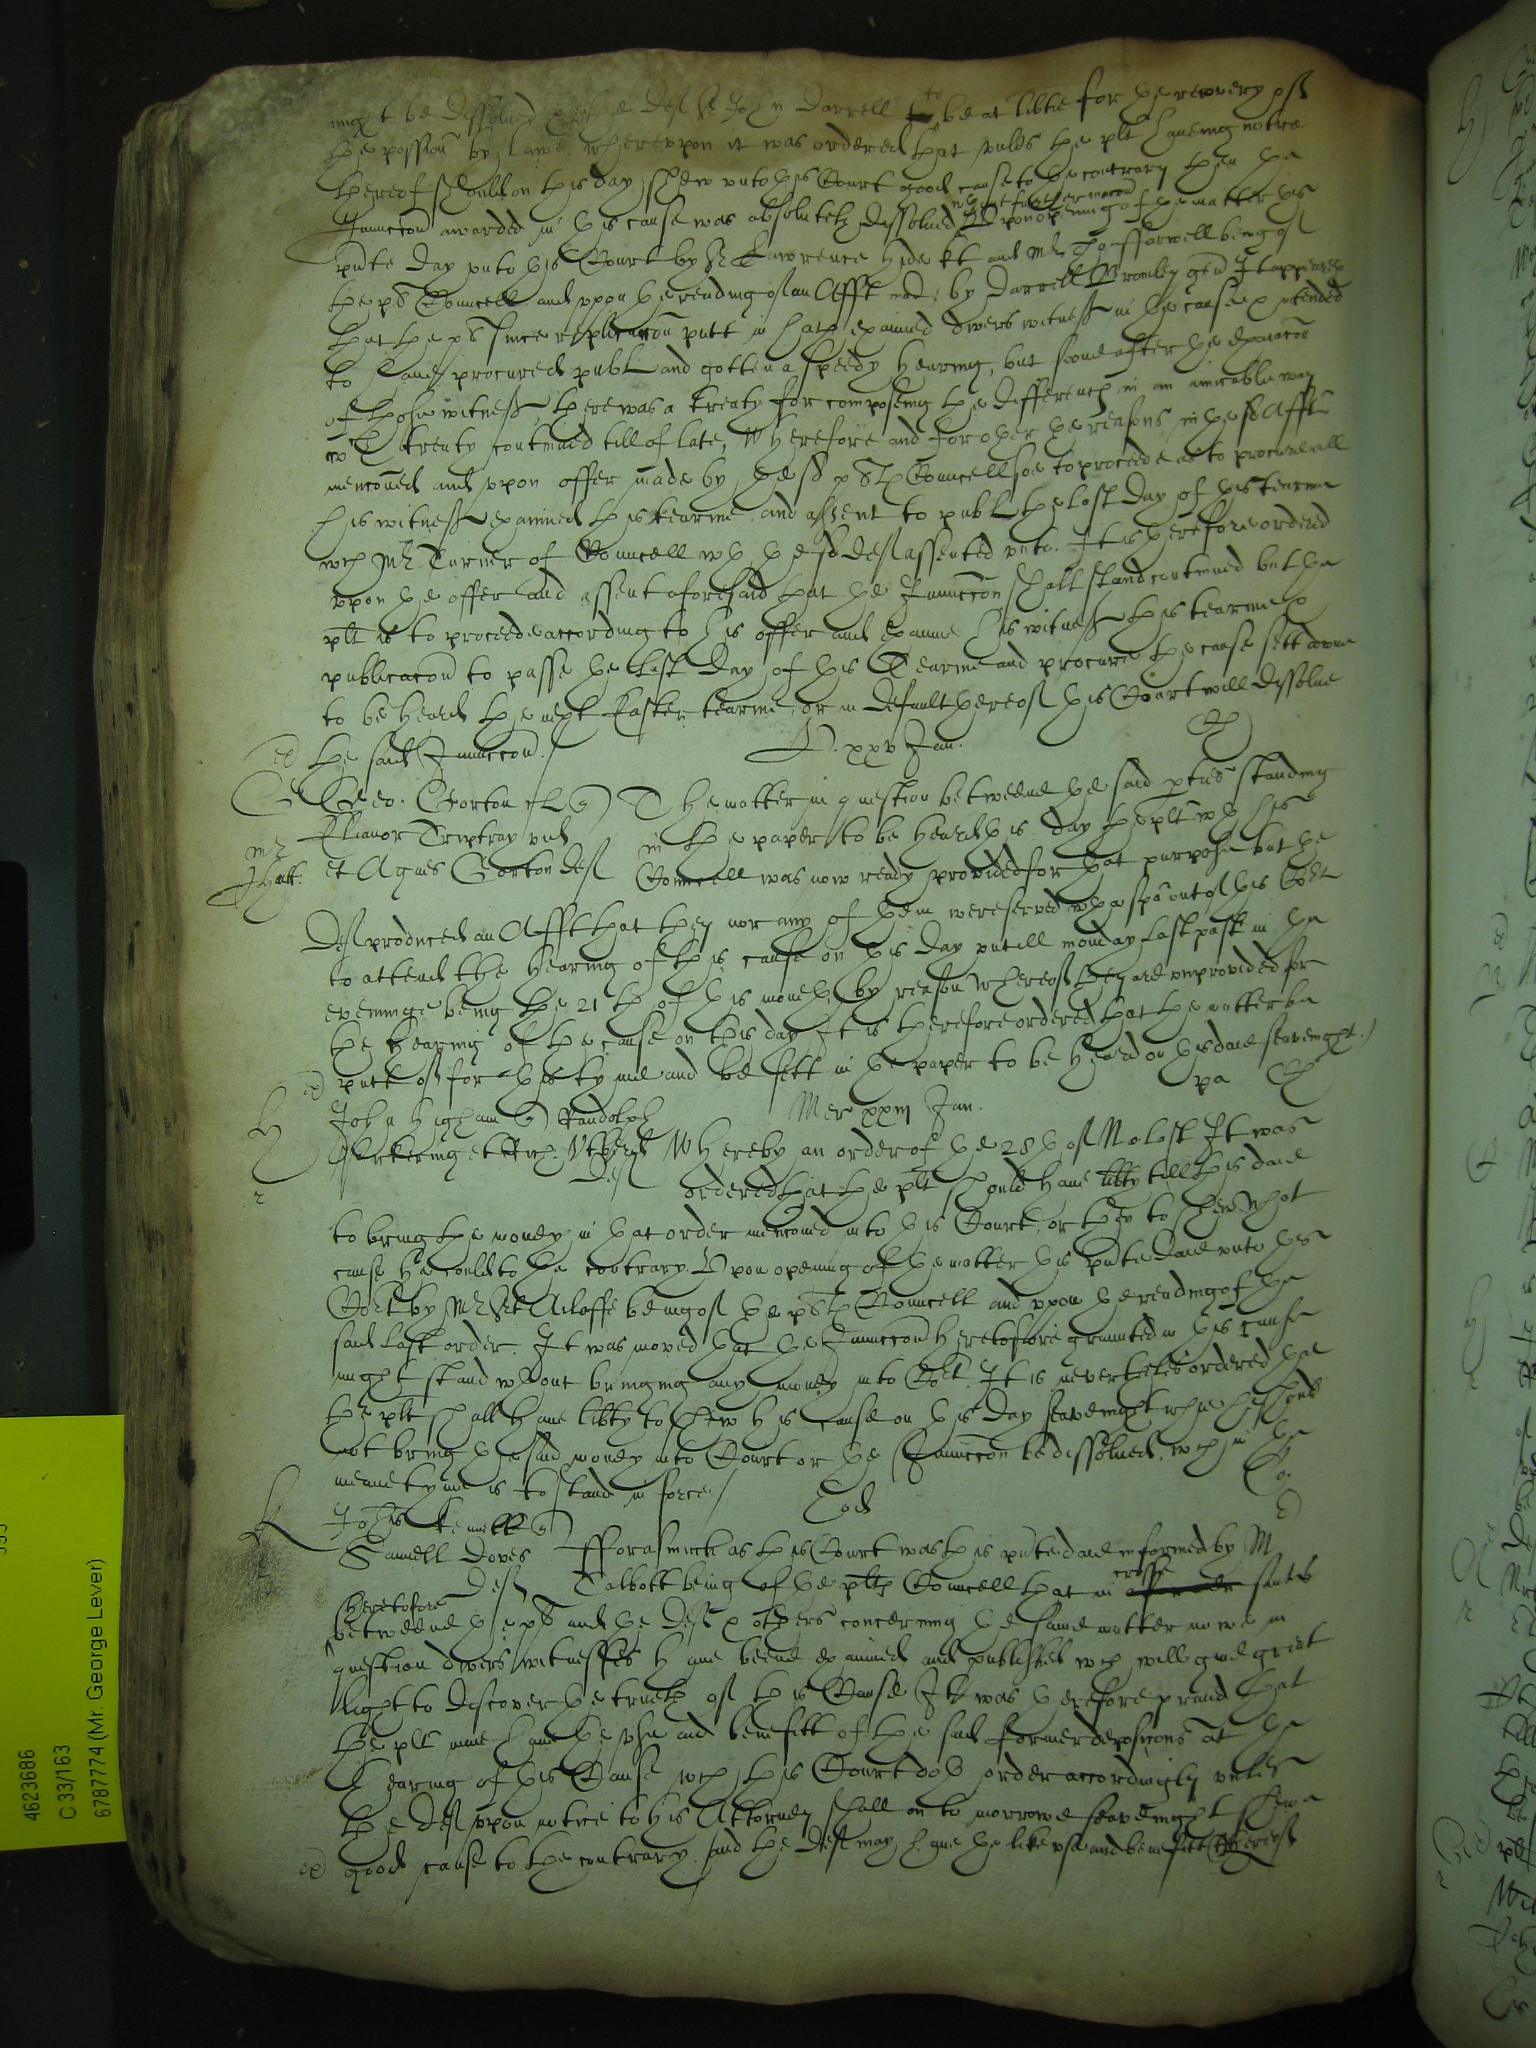 might be dissolued & the def Sr John Darrell to be at libtie for the recouery of
the possion by Lawe, wherevppon it was ordered that vnles the plt haueing notice
thereof should on this day shew vnto this Court good cause to the contrary then the
Iniuccon awarded in this cause was absolutely dissolued wthout further mocon Vpon opening of the matter this
pnte day vnto this Court by Sr Lawrence Hide kt and Mr Tho: Farwell being of
the pts Councell and vppon the reading of an Afft made by Darrell Bromley gen It appeares
that the pt since replicacon putt in hath examined divers witness in the cause & intended
to haue procured publ and gotten a speedy hearing, but soone after the examacon
of those witness there was a treaty for composeing the differences in an amicable way
wch treaty continued till of late, Wherefore and for other the reasons in the sd Affts
menconed and vppon offer made by the sd plts Councell soe to proceede as to procure all
his witness examined this tearme and assent to publ the Last day of this tearme
wch Mr Turnor of Councell wth the sd def assented vnto. It is therefore ordered
vppon the offer and assent aforesaid that the Iniuccon shall stand continued but the
plt is to proceede according to his offer and examine his witness this tearme &
publicacon to passe the Last day of this Tearme and procure the cause sett downe
to be heard the next Easter tearme, or in default thereof this Court will dissolue
ex the said Iniuccon./
V. xxv Jan.
Geo. Gorton plt
Elianor vid
et Agnes Gorton def
Mr
The matter in question betweene the said pties standing
in the paper to be heard this day the plt wth his
Councell was now ready provided for that purpose but the
def produced an Afft that they nor any of them were served wth a spa out of this Cort
to attend the hearing of this cause on this day vntill monday last past in the
eveninge being the 21th of this moneth by reason whereof they are vnprovided for
the hearing of the cause on this day It is therefore ordered that the matter be
ex putt of for this tyme and be sett in the paper to be heard on this daie seavenight./
H
John Higham Randolph
Mer xxiij Jan.
pa
def
Whereby an order of the 28th of No last It was
ordered that the plt should haue libty till this daie
to bring the money in that order menconed into this Court, or then to shew what
cause he could to the contrary. Vpon opening of the matter this pnte daie vnto this
Cort by Mr Sct Ailoffe being of the plts Councell and vppon the reading of the
said last order. It was moved that the Iniuccon heretofore graunted in this cause
might stand wthout bringing any money into Cort. It is neverthelesse ordered that
the plt shall haue libty to shew his cause on this day seavenight why he should
not bring the said money into Court or the Iniuccon be dissolued, wch in the
meane tyme is to stand in force./
Eod
Co.
K
Johes
Samuell Doves
def
Fforasmuch as this Court was this pnte daie informed by Mr
Talbott being of the plts Councell that in crosse suites
heretofore
betweene the pt and the def & others concerning the same matter nowe in
question divers witnesses haue beene examined and published wch will giue great
light to discover the trueth of this Cause It was therefore praied that
the plt maie haue the vse and benefitt of the said former deposicons at the
hearing of this Cause wch this Court doth order accordingly vnles
the def vppon notice to his Attorney shall on to morrowe seavenight shewe
ex good cause to the contrary. And the def may haue the like vse and benefitt thereof
4623686
C 33/163
6787774 (Mr. George Lever)